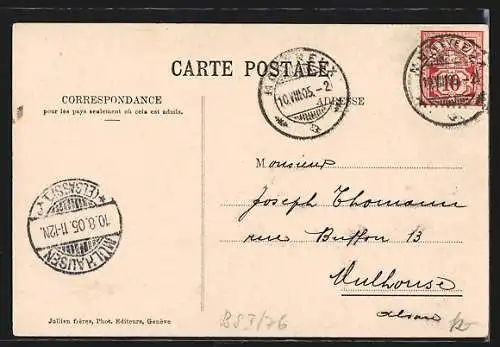 CARTE POSTALE
CORRESPONDANCE
pour les pays seulement où cela est admis.
ADRESSE
10.VIII.05.-2
10
10.8.05.11-12N.
MÜLHAUSEN
(ELSASS)
Monsieur
Joseph Thomann
rue Buffon 13
Mulhouse
Alsace
Jullien frères, Phot. Editeurs, Genève